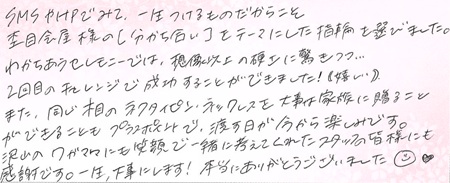 SMSやHPでみて、一生つけるものだからこそ
杢目金屋様の[分かち合い]をテーマにした指輪を選びました。
わかちあうセレモニーでは、想像以上の硬さに驚きつつ…
2回目のチャレンジで成功することができました!(嬉しい)
また、同じ木目のネクタイピン・ネックレスを大事な家族に贈ること
ができることもプラスポイントで、渡す日が今から楽しみです。
沢山のワガママにも笑顔で一緒に考えてくれたスタッフの皆様にも
感謝です。一生、大事にします!本当にありがとうございました